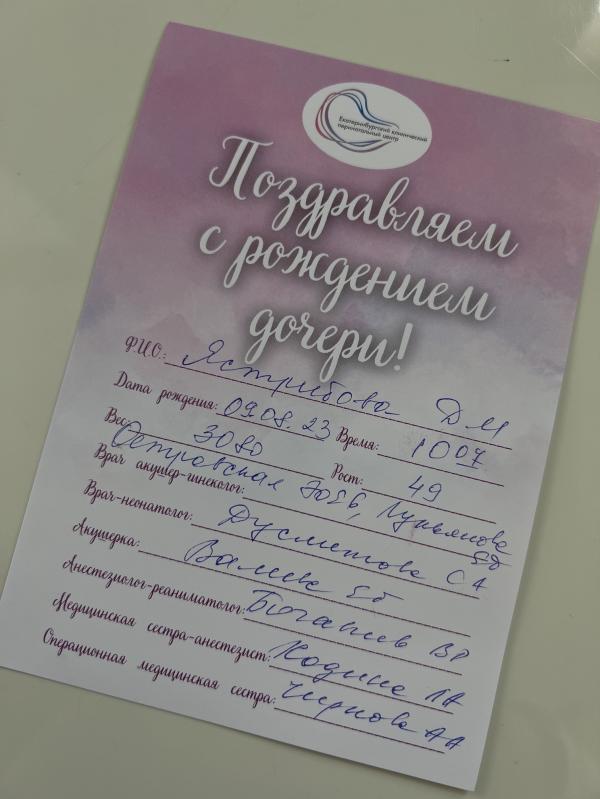 Екатеринбургский клинический
перинатальный центр
Поздравляем
с рождением
дочери!
Ф.И.О.: Ястребова ДМ
Дата рождения: 09.08.23 Время: 10 07
Вес: 3080 Рост: 49
Врач акушер-гинеколог: Островская Лукьянова
Врач-неонатолог: Дусметова СА
Акушерка:
Анестезиолог-реаниматолог: ВР
Медицинская сестра-анестезист: ЛА
Операционная медицинская сестра: Чернова АА